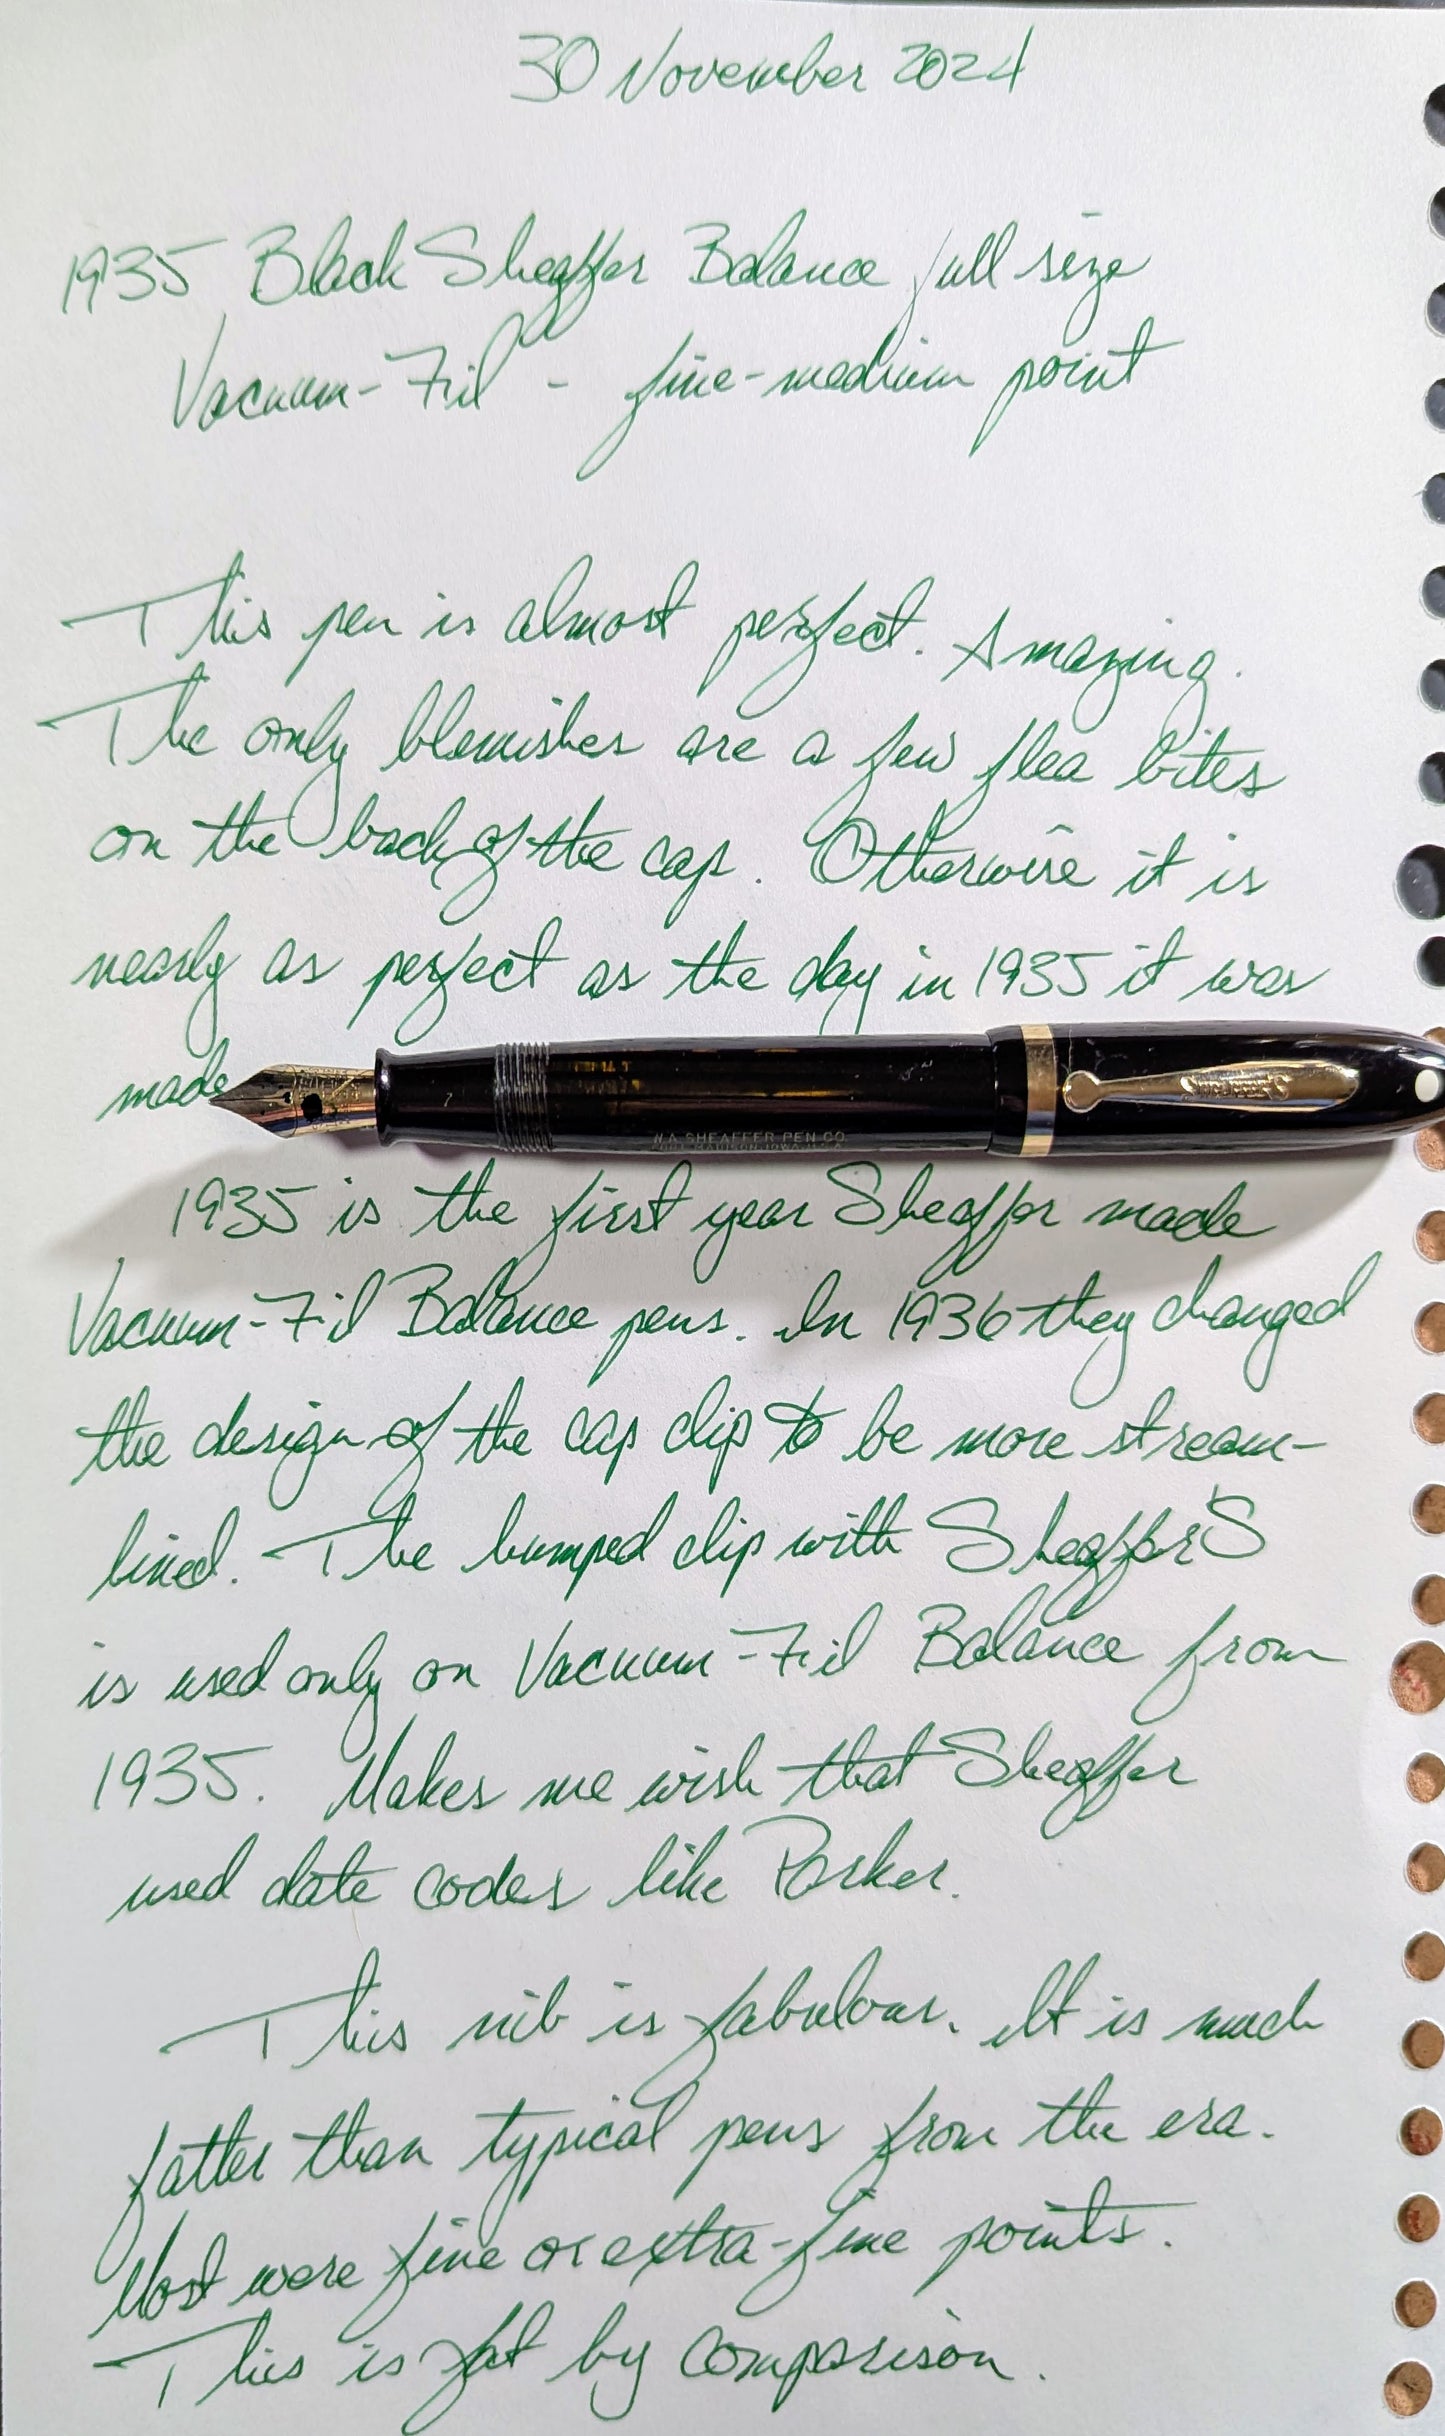 30 November 2024
1935 Black Sheaffer Balance full size
Vacuum-Fil - fine-medium point
This pen is almost perfect. Amazing.
The only blemishes are a few flea bites
on the back of the cap. Otherwise it is
nearly as perfect as the day in 1935 it was
made
SHEAFFER'S
W.A. SHEAFFER PEN CO
FORT MADISON, IOWA, U.S.A.
1935 is the first year Sheaffer made
Vacuum-Fil Balance pens. In 1936 they changed
the design of the cap clip to be more stream-
lined. The humped clip with Sheaffer'S
is used only on Vacuum-Fil Balance from
1935. Makes me wish that Sheaffer
used date codes like Parker.
This nib is fabulous. It is much
fatter than typical pens from the era.
Most were fine or extra-fine points.
This is fat by comparison.